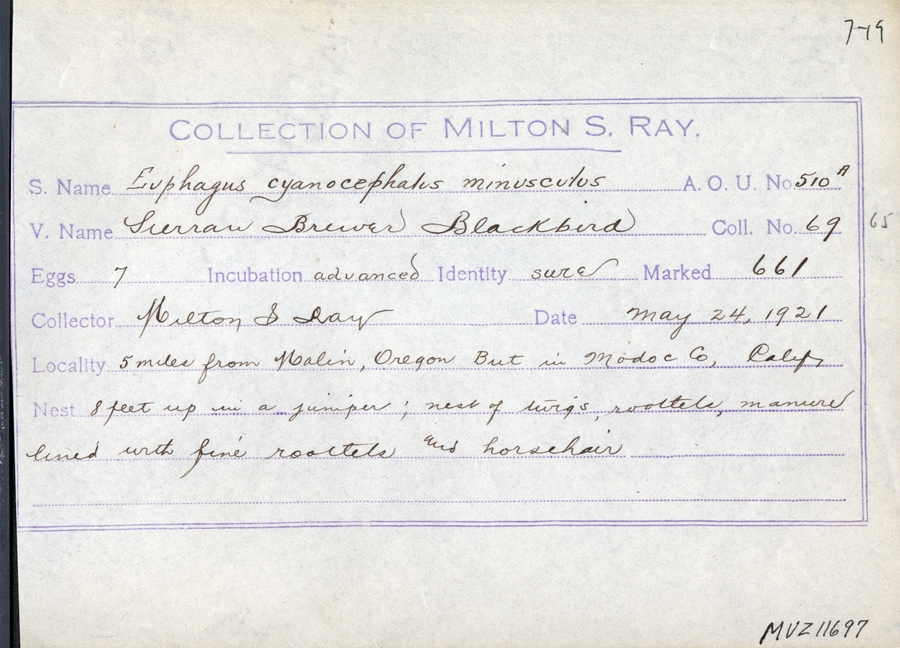 7-19
COLLECTION OF MILTON S. RAY.
S. Name Euphagus cyanocephalus minusculus A. O. U. No 510 A
V. Name Sierran Brewer Blackbird Coll. No. 69 65
Eggs 7 Incubation advanced Identity sure Marked 661
Collector Milton S Ray Date May 24, 1921
Locality 5 miles from Malin, Oregon But in Modoc Co, Calif,
Nest 8 feet up in a juniper; nest of twigs, roottels, manure
lined with fine roottels and horsehair
MVZ 11697